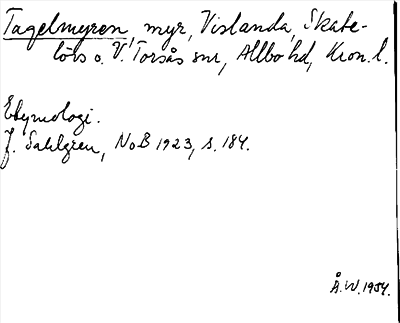 Tagelmyren, myr, Vislanda, Skate-
lövs o. V. Torsås snr, Allbo hd, Kron. l.
Etymologi.
J. Sahlgren, NoB 1923, s. 184.
Å.W. 1954.